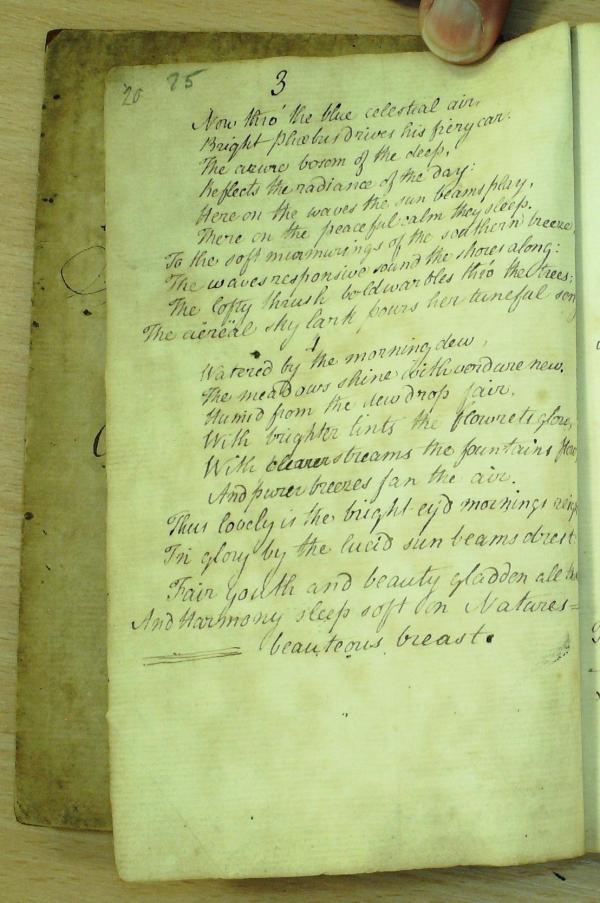 20 25
3
Now thro' the blue celestial air,
Bright Phœbus drives his fiery car.
The azure bosom of the deep,
Reflects the radiance of the day:
Here on the waves the sun beams play,
There on the peaceful calm they sleep.
To the soft murmurings of the southern breeze,
The waves responsive sound the shores along:
The lofty thrush bold warbles thro' the trees;
The aëreäl sky lark pours her tuneful son
4
Watered by the morning dew,
The meadows shine with verdure new.
Humid from the dew drops fair,
With brighter tints the flowrets glow,
With clearer streams the fountains flow
And purer breezes fan the air.
Thus lovely is the bright-ey'd mornings reign
In glory by the lucid sun beams drest
Fair youth and beauty gladden all
And Harmony sleep soft on Natures=
beauteous breast.